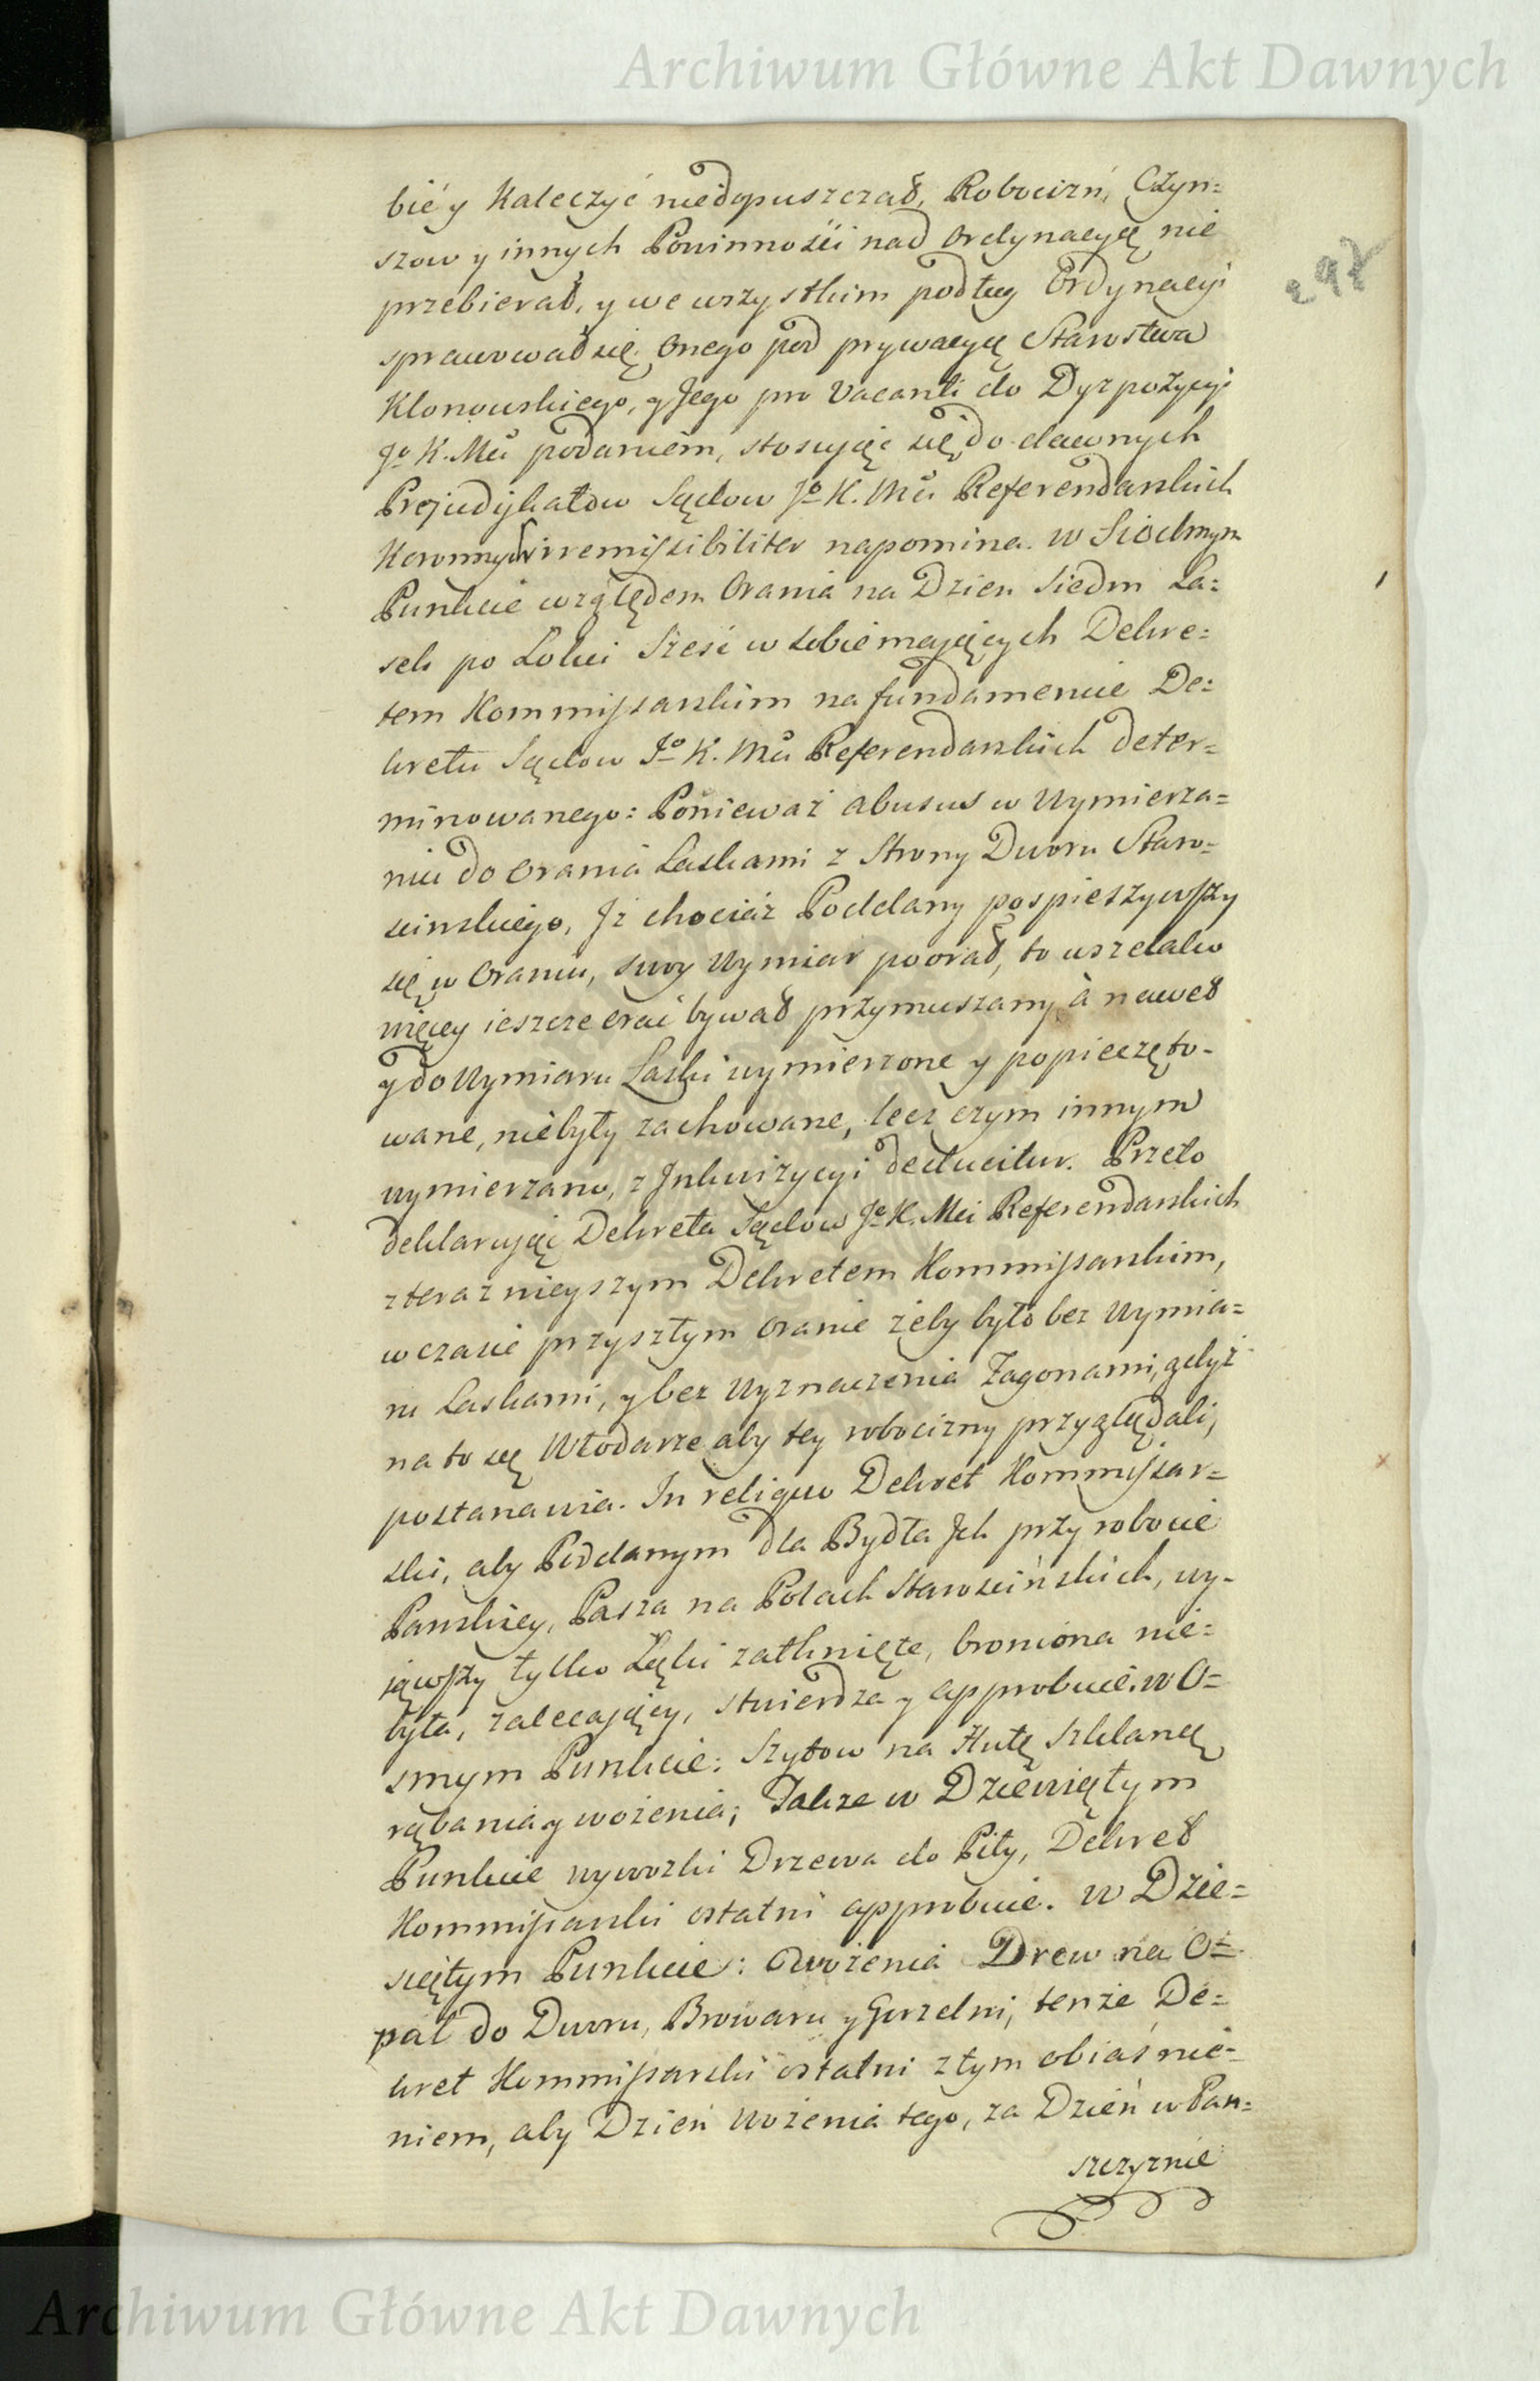 Archiwum Główne Akt Dawnych
297
bić y Kaleczyć niedopuszczał, Robocizn, Czyn=
szow y innych Powinności nad Ordynacyę nie
przebierał, y we wszystkim podług Ordynacyi
sprawował się. Onego pod prywacyą Starostwa
Klonowskiego, y Jego pro Vacanti do Dyzpozycyi
Jo K. Mci podaniem, stosując się do dawnych
Prejudykatow Sądow Jo K. Mci Referendarskich
Koronnych irremissibiliter napomina. W Siodmym
Punkcie względem Orania na Dzien Siedm La=
sek po Łokci Sześć w sobie mających Dekre=
tem Kommissarskim na fundamencie De=
kretu Sądow Jo K. Mci Referendarskich deter=
minowanego: Ponieważ abusus w Wymierza=
niu do Orania Laskami z Strony Dworu Staro=
scinskiego, Iż chociaż Poddany pospieszywszy
się w Oraniu, swoy Wymiar poorał, to wszelako
więcey ieszcze orać bywał przymuszany à nawet
y do Wymiaru Laski wymierzone y popieczęto=
wane, niebyły zachowane, lecz czym innym
wymierzano, z Inkwizycyi deducitur. Przeto
deklarując Dekreta Sądow Jo K. Mci Referendarskich
z teraznieyszym Dekretem Kommissarskim,
w czasie przyszłym Oranie żeby było bez Wymia=
ru Laskami, y bez Wyznaczenia Zagonami, gdyż
na to są Włodarze aby tey robocizny przyglądali,
postanawia. In reliquo Dekret Kommissar=
ski, aby Poddanym dla Bydła Ich przy robocie
Panskiey, Pasza na Polach Starościńskich, wy=
iąwszy tylko Łąki zatknięte, broniona nie=
była, zalecający, stwierdza y approbuie. W O=
smym Punkcie: Szytow na Hutę Szklaną
rąbania y wożenia; Także w Dziewiątym
Punkcie wywozki Drzewa do Piły, Dekret
Kommissarski ostatni approbuie. W Dzie=
siątym Punkcie: Zwożenia Drew na O=
pał do Dworu, Browaru y Gorzelni, tenże De=
kret Kommissarski ostatni z tym obiaśnie=
niem, aby Dzień Wożenia tego, za Dzień w Pań=
szczyznie
Archiwum Główne Akt Dawnych